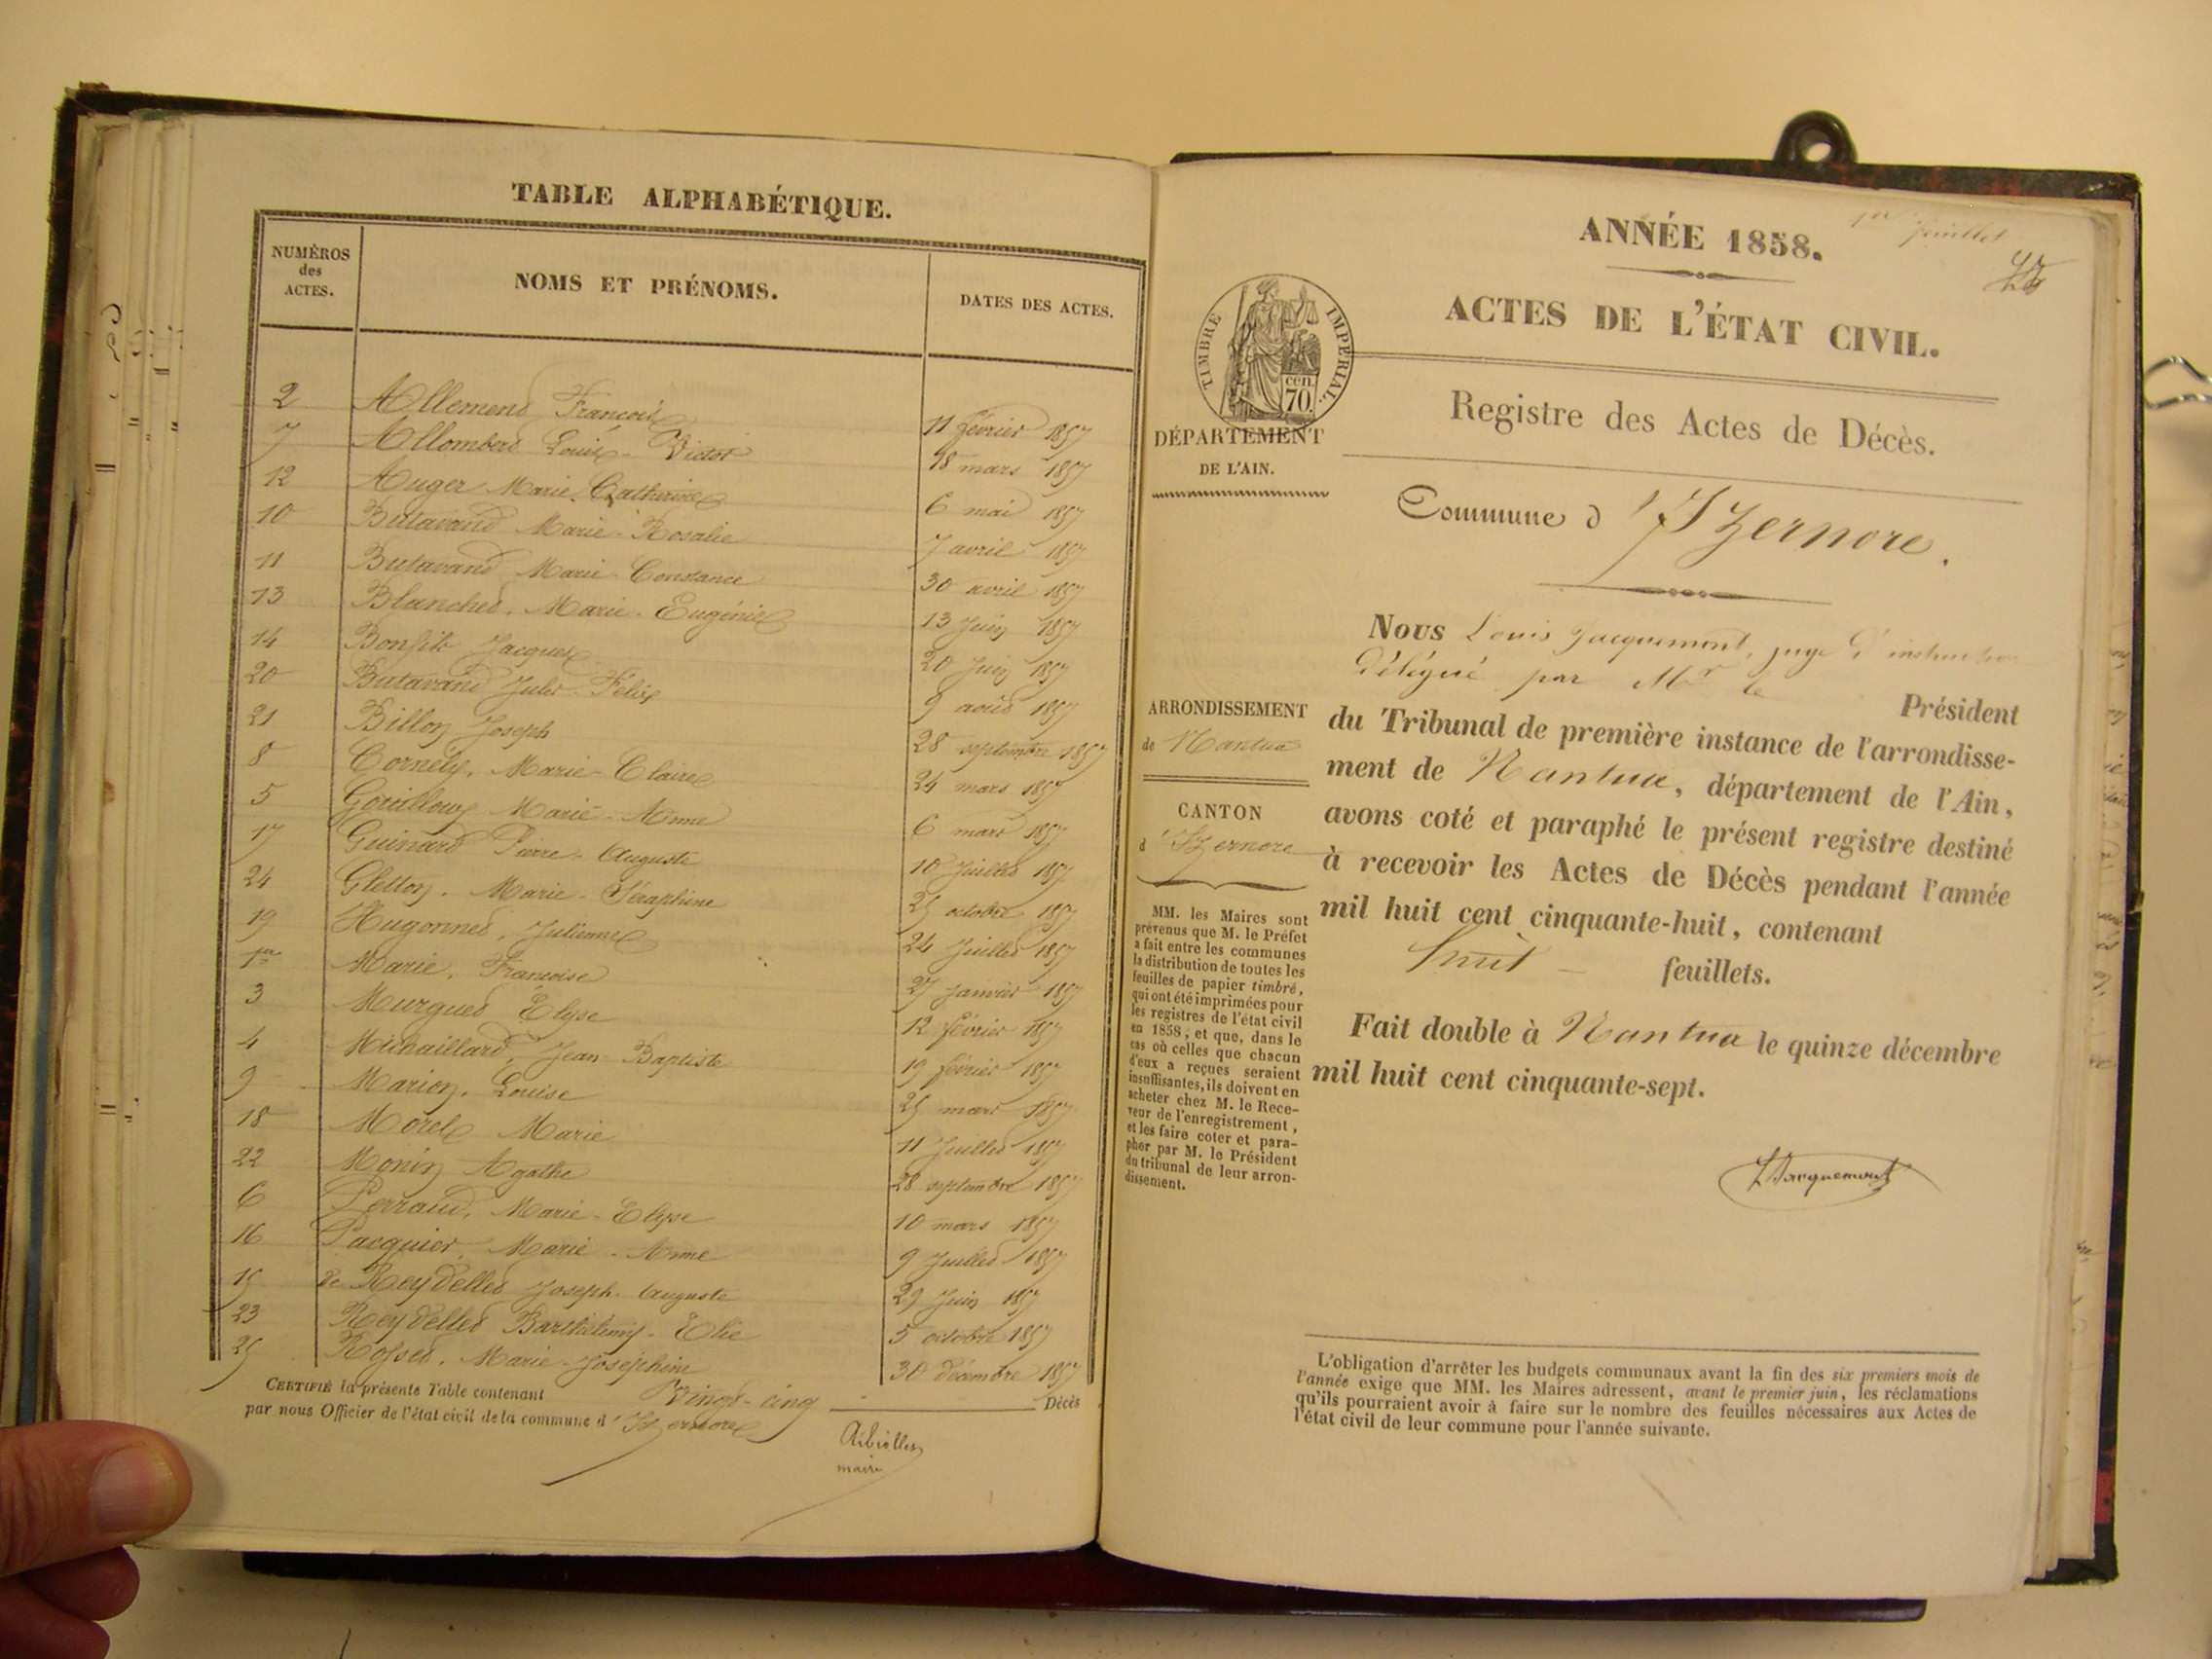 TABLE ALPHABÉTIQUE.
NUMÉROS des ACTES. NOMS ET PRÉNOMS. DATES DES ACTES.
2 Allemend François 11 février 1857
7 Allombert Louis-Victor 18 mars 1857
12 Auger Marie Catherine 6 mai 1857
10 Butavand Marie-Rosalie 7 avril 1857
11 Butavand Marie-Constance 30 avril 1857
13 Blanchet, Marie-Eugénie 13 Juin 1857
14 Jacques 20 Juin 1857
20 Butavand Jules-Félix 9 août 1857
21 Billon Joseph 28 septembre 1857
8 Cornély, Marie-Claire 24 mars 1857
5 Marie-Anne 6 mars 1857
17 Guinard Pierre-Auguste 10 Juillet 1857
24 Gletton, Marie-Séraphine 25 octobre 1857
19 Hugonnet, Julienne 24 Juillet 1857
1er Marie, Françoise 27 Janvier 1857
3 Murguet Élyse 12 février 1857
4 Michaillard, Jean-Baptiste 19 février 1857
9 Marion, Louise 25 mars 1857
18 Morel Marie 11 Juillet 1857
22 Monin Agathe 28 septembre 1857
6 Perraud, Marie-Elyse 10 mars 1857
16 Pacquier, Marie-Anne 9 Juillet 1857
15 de Reydellet Joseph-Auguste 29 Juin 1857
23 Reydellet Barthélemy-Elie 5 octobre 1857
25 Rosset, Marie-Joséphine 30 décembre 1857
CERTIFIÉ la présente Table contenant Vingt-cinq Décès
par nous Officier de l'état civil de la commune d'Izernore
maire
1er feuillet
ANNÉE 1858.
ACTES DE L'ÉTAT CIVIL.
TIMBRE IMPERIAL.
cen. 70.
Registre des Actes de Décès.
DÉPARTEMENT
DE L'AIN.
Commune d'Izernore.
Nous Louis Jacquemont, juge d'instruction
délégué par Mr le Président
ARRONDISSEMENT
de Nantua
CANTON
d'Izernore
du Tribunal de première instance de l'arrondisse-
ment de Nantua, département de l'Ain,
avons coté et paraphé le présent registre destiné
à recevoir les Actes de Décès pendant l'année
mil huit cent cinquante-huit, contenant
huit feuillets.
MM. les Maires sont
prévenus que M. le Préfet
a fait entre les communes
la distribution de toutes les
feuilles de papier timbré,
qui ont été imprimées pour
les registres de l'état civil
en 1858, et que, dans le
cas où celles que chacun
d'eux a reçues seraient
insuffisantes, ils doivent en
acheter chez M. le Rece-
veur de l'enregistrement,
et les faire coter et para-
pher par M. le Président
du tribunal de leur arron-
dissement.
Fait double à Nantua le quinze décembre
mil huit cent cinquante-sept.
L Jacquemont
L'obligation d'arrêter les budgets communaux avant la fin des six premiers mois de
l'année exige que MM. les Maires adressent, avant le premier juin, les réclamations
qu'ils pourraient avoir à faire sur le nombre des feuilles nécessaires aux Actes de
l'état civil de leur commune pour l'année suivante.